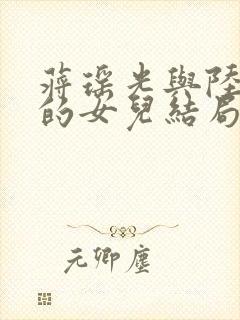 蔣瑤光與陸
的女兒結局
元卿塵